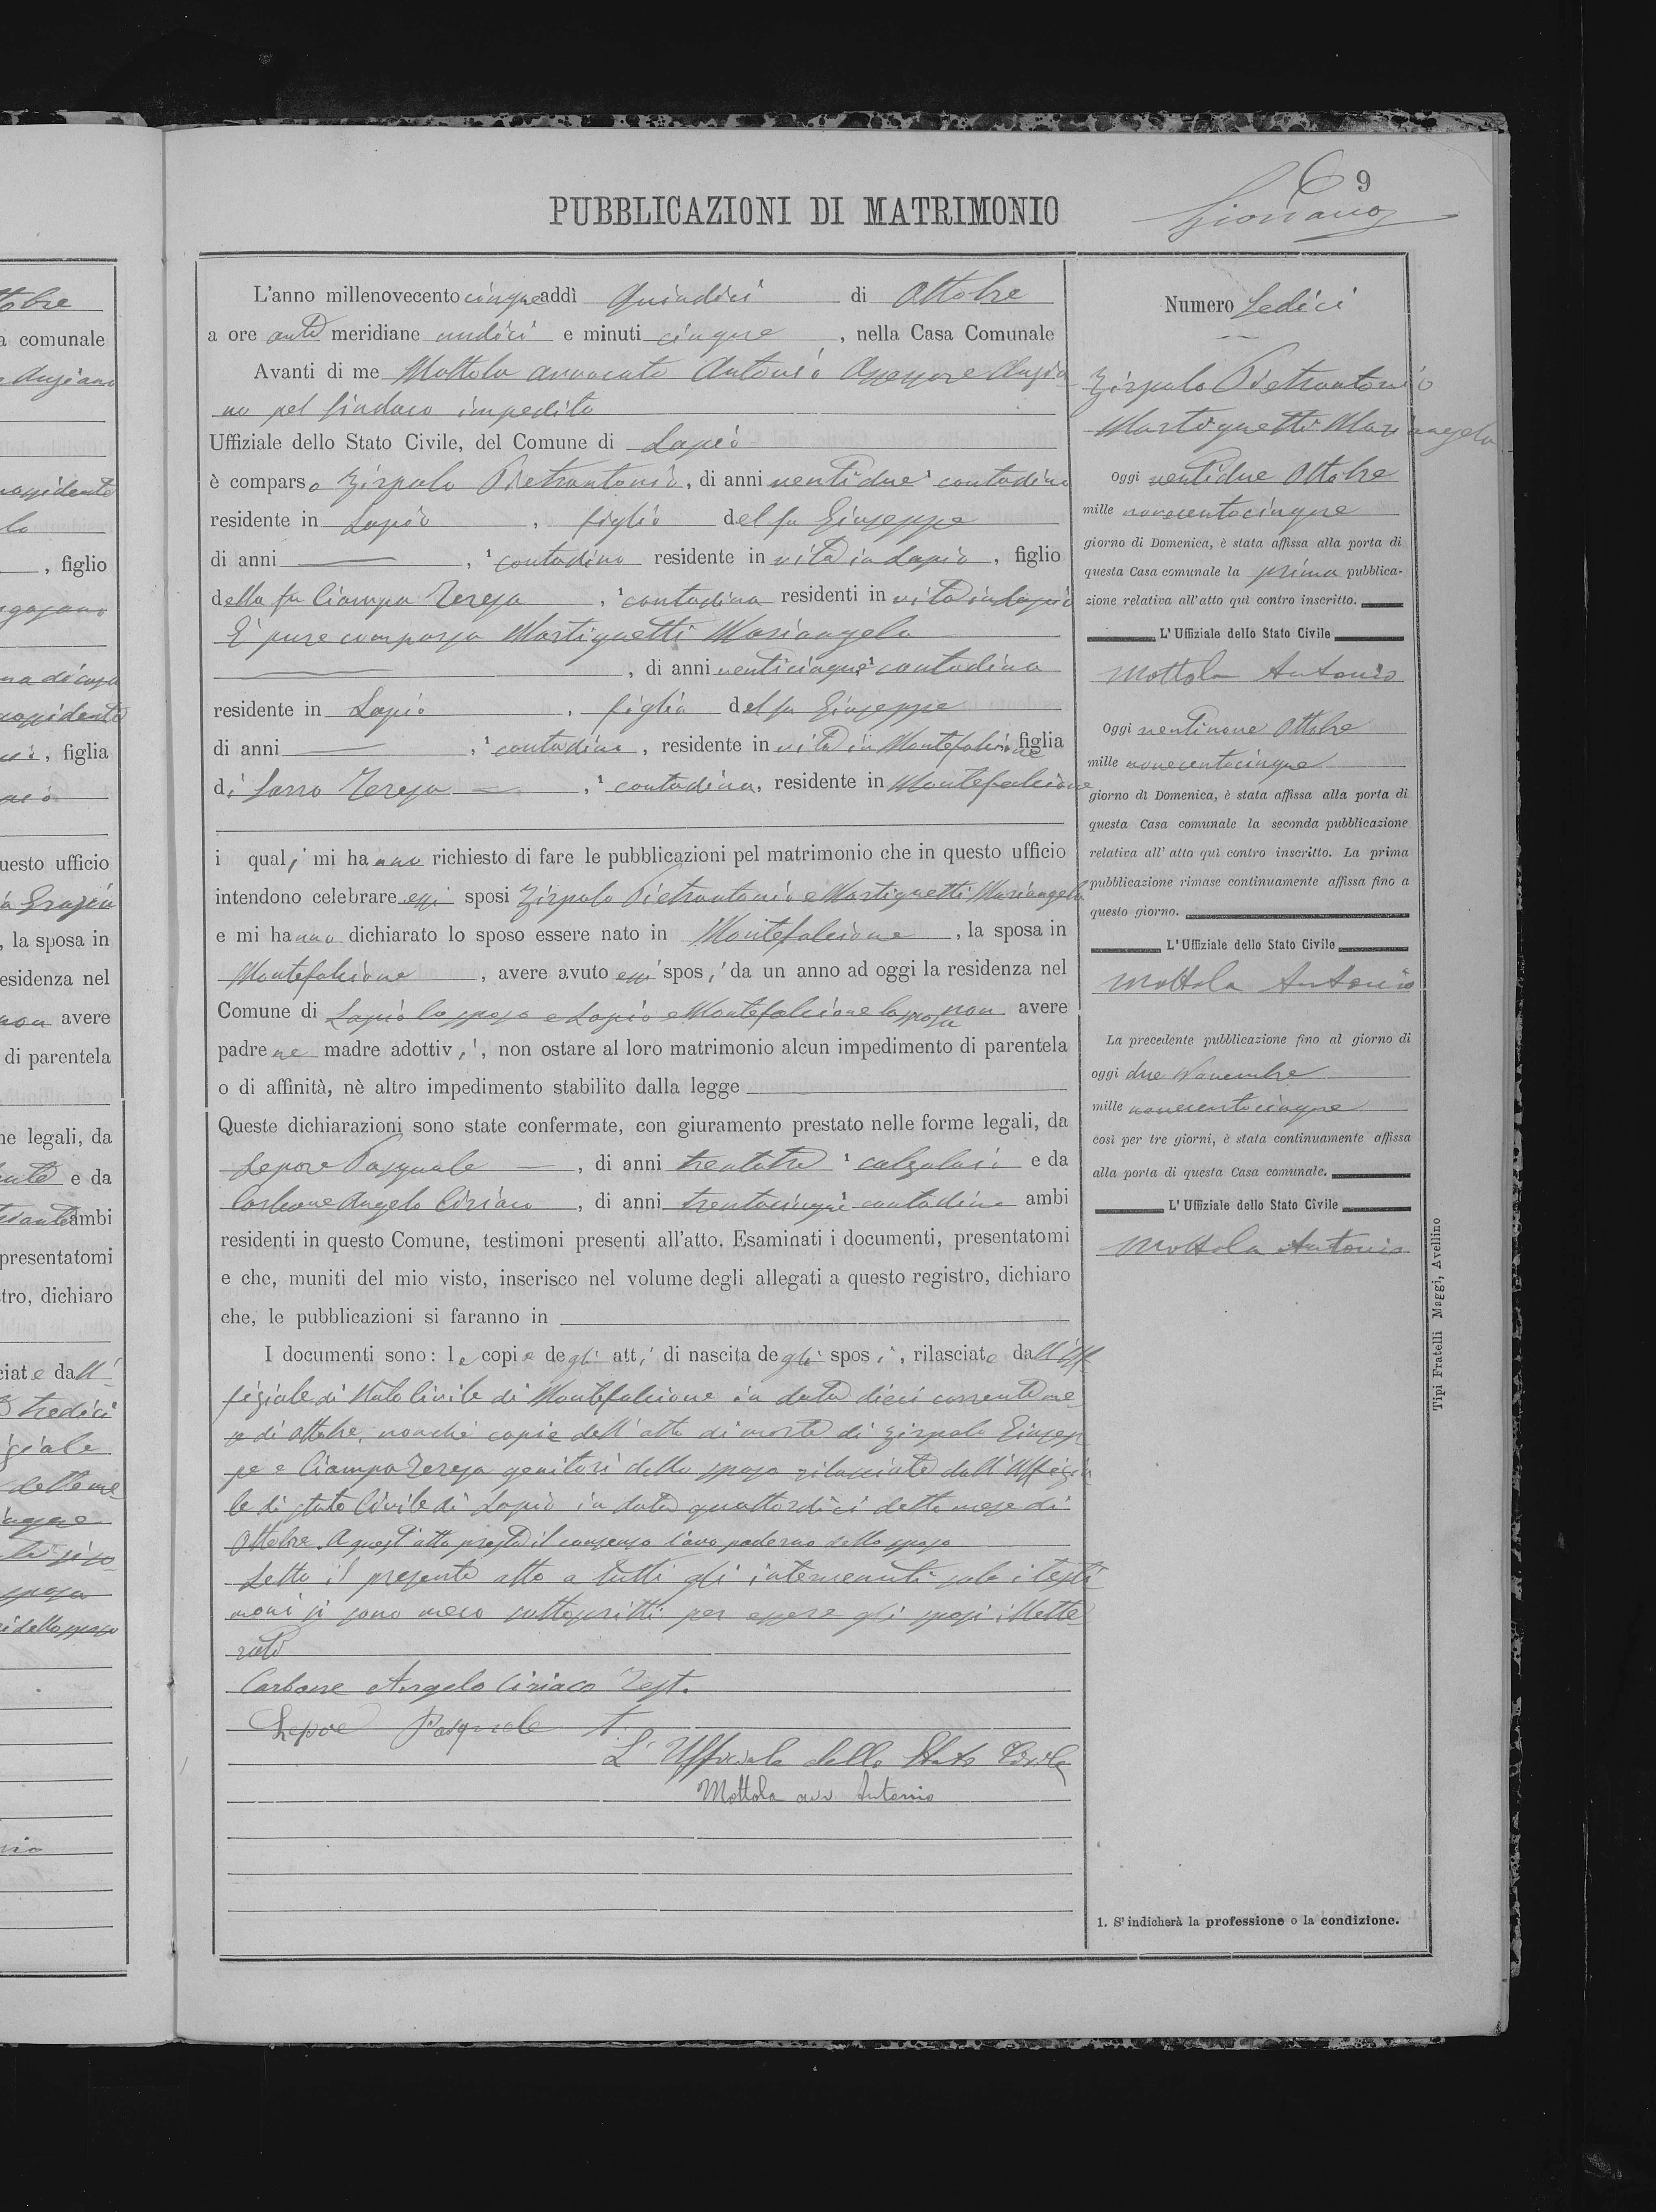 tobre
a comunale
Anziano
, figlio
na di casa
, figlia
uesto ufficio
a Grazia
, la sposa in
esidenza nel
non avere
di parentela
ne legali, da
e da
ambi
presentatomi
tro, dichiaro
ciate dall'
tredici
6 9
Giordano
PUBBLICAZIONI DI MATRIMONIO
L'anno millenovecentocinque addì quindici di Ottobre
a ore anti meridiane undici e minuti cinque, nella Casa Comunale
Avanti di me Mottola avvocato Antonio Assessore Anzia
no pel Sindaco impedito
Uffiziale dello Stato Civile, del Comune di Lapio
è comparso Zirpolo Pietrantonio, di anni ventidue ¹ contadino
residente in Lapio, figlio del fu Giuseppe
di anni — , ¹ contadino residente in vita in Lapio, figlio
della fu Ciampa Teresa, ¹ contadina residenti in vita in Lapio
È pure comparsa Martignetti Mariangela
— , di anni venticinque ¹ contadina
residente in Lapio, figlia del fu Giuseppe
di anni — , ¹ contadino, residente in vita in Montefalcione figlia
di Sarro Teresa — , ¹ contadina, residente in Montefalcione
i quali mi hanno richiesto di fare le pubblicazioni pel matrimonio che in questo ufficio
intendono celebrare essi sposi Zirpolo Pietrantonio e Martignetti Mariangela
e mi hanno dichiarato lo sposo essere nato in Montefalcione, la sposa in
Montefalcione, avere avuto essi sposi da un anno ad oggi la residenza nel
Comune di Lapio lo sposo e Lapio e Montefalcione la sposa non avere
padre ne madre adottivi, non ostare al loro matrimonio alcun impedimento di parentela
o di affinità, nè altro impedimento stabilito dalla legge
Queste dichiarazioni sono state confermate, con giuramento prestato nelle forme legali, da
Lepore Pasquale — , di anni trentatre ¹ calzolaio e da
Carbone Angelo Ciriaco, di anni trentacinque ¹ contadino ambi
residenti in questo Comune, testimoni presenti all'atto. Esaminati i documenti, presentatomi
e che, muniti del mio visto, inserisco nel volume degli allegati a questo registro, dichiaro
che, le pubblicazioni si faranno in
I documenti sono: le copie degli atti di nascita degli sposi, rilasciate dall'Uf
fiziale di Stato Civile di Montefalcione in data dieci corrente me
se di Ottobre, nonchè copie dell'atto di morte di Zirpolo Giusep
pe e Ciampa Teresa genitori dello sposo rilasciate dall'Uffizia
le di Stato Civile di Lapio in data quattordici detto mese di
Ottobre. A quest'atto presta il consenso l'avo paderno dello sposo
Letto il presente atto a tutti gli intervenuti solo i testi
moni si sono meco sottoscritti per essere gli sposi illette
rati
Carbone Angelo Ciriaco Test.
Lepore Pasquale T.
L'Ufficiale dello Stato Civile
Mottola avv. Antonio
Numero Sedici
Zirpolo Pietrantonio
Martignetti Mariangela
Oggi ventidue Ottobre
mille novecentocinque
giorno di Domenica, è stata affissa alla porta di
questa Casa comunale la prima pubblica-
zione relativa all'atto quì contro inscritto.
L'Uffiziale dello Stato Civile
Mottola Antonio
Oggi ventinove Ottobre
mille novecentocinque
giorno di Domenica, è stata affissa alla porta di
questa Casa comunale la seconda pubblicazione
relativa all'atto quì contro inscritto. La prima
pubblicazione rimase continuamente affissa fino a
questo giorno.
L'Uffiziale dello Stato Civile
Mottola Antonio
La precedente pubblicazione fino al giorno di
oggi due Novembre
mille novecentocinque
così per tre giorni, è stata continuamente affissa
alla porta di questa Casa comunale.
L'Uffiziale dello Stato Civile
Mottola Antonio
1. S'indicherà la professione o la condizione.
Tipi Fratelli Maggi, Avellino